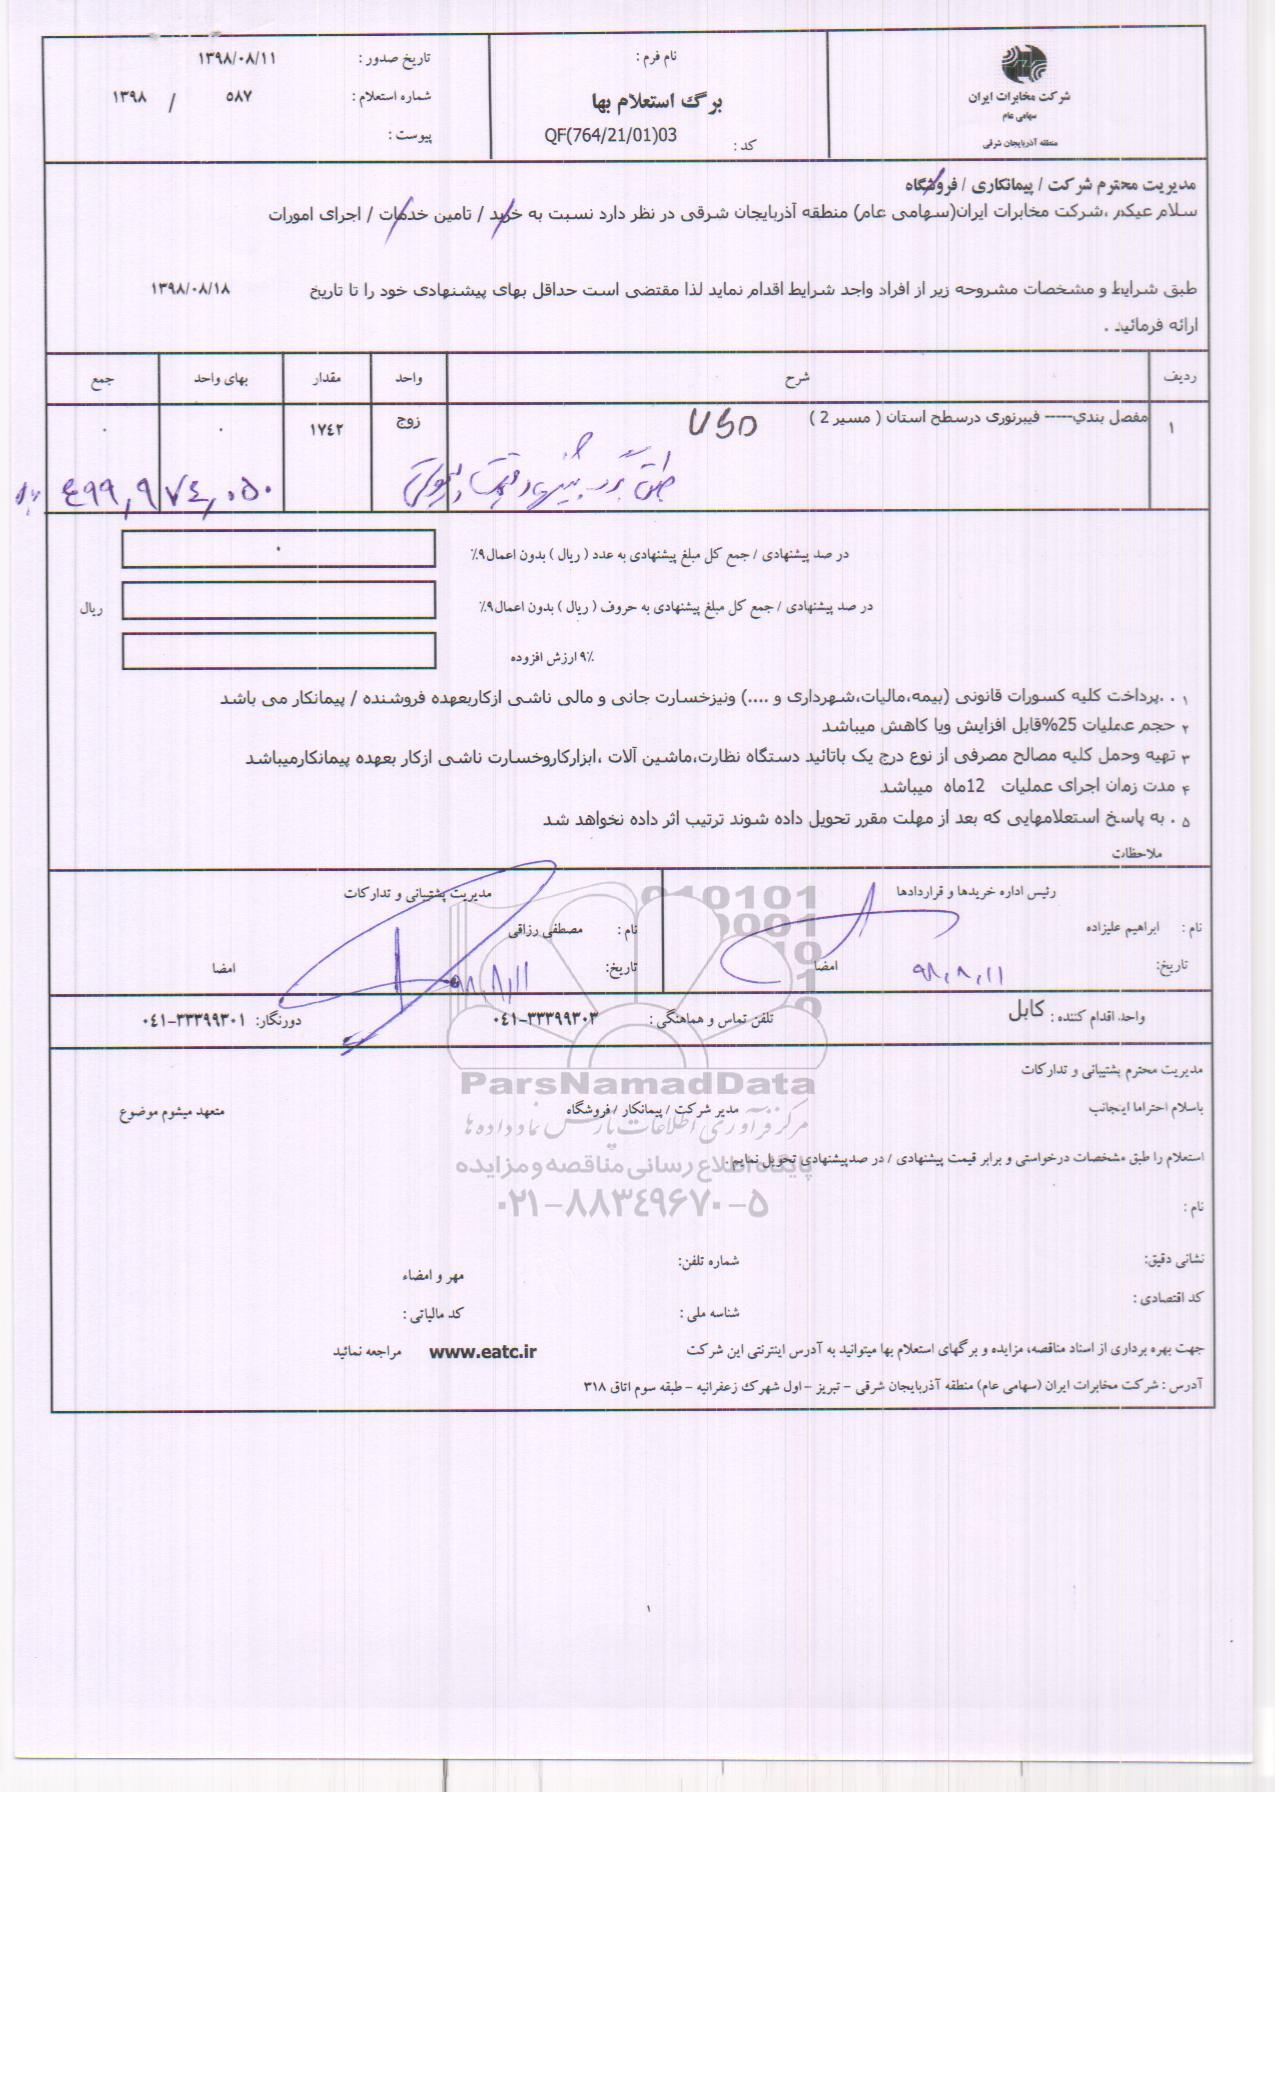 شرکت مخابرات ایران
سهامی عام
منطقه آذربایجان شرقی
نام فرم :
برگ استعلام بها
کد : QF(764/21/01)03
تاریخ صدور : ۱۳۹۸/۰۸/۱۱
شماره استعلام : ۵۸۷ / ۱۳۹۸
پیوست :
مدیریت محترم شرکت / پیمانکاری / فروشگاه
سلام عیکم ،شرکت مخابرات ایران(سهامی عام) منطقه آذربایجان شرقی در نظر دارد نسبت به خرید / تامین خدمات / اجرای امورات
طبق شرایط و مشخصات مشروحه زیر از افراد واجد شرایط اقدام نماید لذا مقتضی است حداقل بهای پیشنهادی خود را تا تاریخ ۱۳۹۸/۰۸/۱۸
ارائه فرمائید .
ردیف شرح واحد مقدار بهای واحد جمع
۱ مفصل بندي----- فیبرنوری درسطح استان ( مسیر 2 ) زوج ۱۷٤۲ ۰ ۰
طبق برگ پیشنهاد قیمت ٤۹۹,۹۷٤,۰۵۰
در صد پیشنهادی / جمع کل مبلغ پیشنهادی به عدد ( ریال ) بدون اعمال ۹٪ ۰
در صد پیشنهادی / جمع کل مبلغ پیشنهادی به حروف ( ریال ) بدون اعمال ۹٪ ریال
۹٪ ارزش افزوده
۱ . .پرداخت کلیه کسورات قانونی (بیمه،مالیات،شهرداری و ....) ونیزخسارت جانی و مالی ناشی ازکاربعهده فروشنده / پیمانکار می باشد
۲ حجم عملیات 25%قابل افزایش ویا کاهش میباشد
۳ تهیه وحمل کلیه مصالح مصرفی از نوع درج یک باتائید دستگاه نظارت،ماشین آلات ،ابزارکاروخسارت ناشی ازکار بعهده پیمانکارمیباشد
۴ مدت زمان اجرای عملیات 12ماه میباشد
۵ . به پاسخ استعلامهایی که بعد از مهلت مقرر تحویل داده شوند ترتیب اثر داده نخواهد شد
ملاحظات
رئیس اداره خریدها و قراردادها
نام : ابراهیم علیزاده
تاریخ: ۹۸,۸,۱۱ امضا
مدیریت پشتیبانی و تدارکات
نام : مصطفی رزاقی
تاریخ: ۹۸,۸,۱۱ امضا
واحد اقدام کننده : کابل تلفن تماس و هماهنگی : ۰٤۱-۳۳۳۹۹۳۰۳ دورنگار: ۰٤۱-۳۳۳۹۹۳۰۱
مدیریت محترم پشتیبانی و تدارکات
باسلام احتراما اینجانب مدیر شرکت / پیمانکار / فروشگاه متعهد میشوم موضوع
استعلام را طبق مشخصات درخواستی و برابر قیمت پیشنهادی / در صدپیشنهادی تحویل نمایم .
نام :
نشانی دقیق: شماره تلفن: مهر و امضاء
کد اقتصادی : شناسه ملی : کد مالیاتی :
جهت بهره برداری از اسناد مناقصه، مزایده و برگهای استعلام بها میتوانید به آدرس اینترنتی این شرکت www.eatc.ir مراجعه نمائید
آدرس : شرکت مخابرات ایران (سهامی عام) منطقه آذربایجان شرقی - تبریز - اول شهرک زعفرانیه - طبقه سوم اتاق ۳۱۸
ParsNamadData
مرکز فرآوری اطلاعات پارس نماد داده ها
پایگاه اطلاع رسانی مناقصه و مزایده
۰۲۱-۸۸۳٤۹۶۷۰-۵
۱